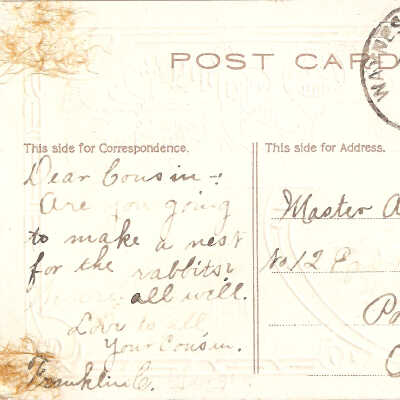 POST CARD
WAYNES
This side for Correspondence.
This side for Address.
Dear Cousin -:
Are you going
to make a nest
for the rabbits?
all well.
Love to all
Your Cousin.
Franklin C.
Master A
No 12